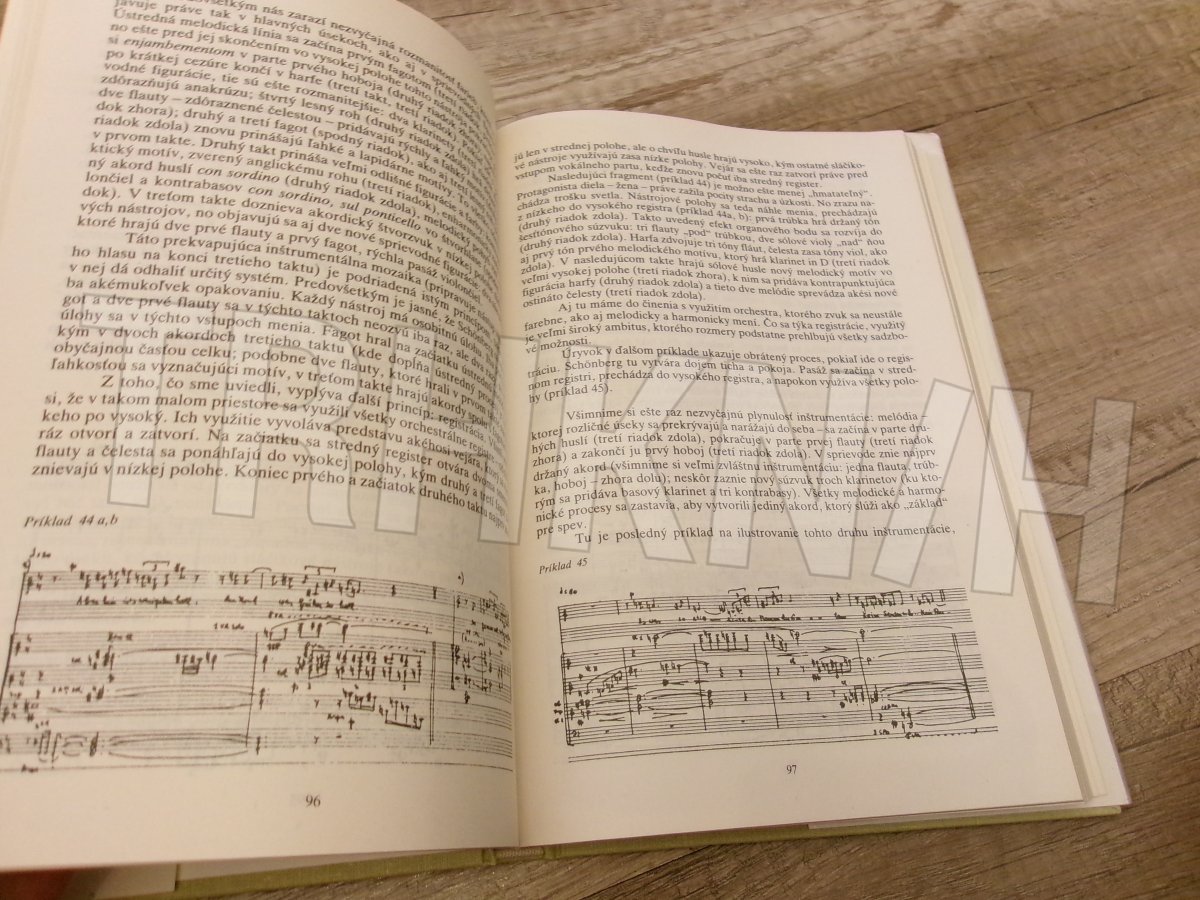 nás zarazí nezvyčajná rozmanitosť
javuje práve tak v hlavných úsekoch, ako aj v
Ústredná melodická línia sa začína prvým fagotom (tretí
no ešte pred jej skončením vo vysokej polohe tohto nástroja
si enjambementom v parte prvého hoboja (druhý riadok
po krátkej cezúre končí v harfe (tretí takt, tretí riadok
vodné figurácie, tie sú ešte rozmanitejšie: dva klarinety
zdôrazňujú anakrúzu; štvrtý lesný roh (druhý riadok
dve flauty – zdôraznené čelestou – pridávajú rýchly a ľahký
dok zhora); druhý a tretí fagot (spodný riadok), ako aj tretí
riadok zdola) znovu prinášajú ľahké a lapidárne motívy. To
v prvom takte. Druhý takt prináša veľmi odlišné figurácie:
ktický motív, zverený anglickému rohu (tretí riadok),
ný akord huslí con sordino (druhý riadok zdola), melodický
lončiel a kontrabasov con sordino, sul ponticello vo štvrtom
dok). V treťom takte doznieva akordický štvorzvuk v nízkej
vých nástrojov, no objavujú sa aj dve nové sprievodné figurácie:
ktoré hrajú dve prvé flauty a prvý fagot, rýchla pasáž violončiel
Táto prekvapujúca inštrumentálna mozaika (pripravuje
ho hlasu na konci tretieho taktu) je podriadená istým princípom
v nej dá odhaliť určitý systém. Predovšetkým je jasné, že Schönberg
ba akémukoľvek opakovaniu. Každý nástroj má osobitnú úlohu
got a dve prvé flauty sa v týchto taktoch neozvú iba raz, ale dva
úlohy sa v týchto vstupoch menia. Fagot hral na začiatku ústrednú
kým v dvoch akordoch tretieho taktu (kde dopĺňa ústredný
obyčajnou časťou celku; podobne dve flauty, ktoré hrali v prvom
ľahkosťou sa vyznačujúci motív, v treťom takte hrajú akordy
Z toho, čo sme uviedli, vyplýva ďalší princíp: registrácia.
si, že v takom malom priestore sa využili všetky orchestrálne registre
keho po vysoký. Ich využitie vyvoláva predstavu akéhosi vejára, ktorý
ráz otvorí a zatvorí. Na začiatku sa stredný register otvára dvoma
flauty a čelesta sa ponáhľajú do vysokej polohy, kým druhý a tretí fagot
znievajú v nízkej polohe. Koniec prvého a začiatok druhého taktu
Príklad 44 a,b
96
jú len v strednej polohe, ale o chvíľu husle hrajú vysoko, kým ostatné sláčiko-
vé nástroje využívajú zasa nízke polohy. Vejár sa ešte raz zatvorí práve pred
vstupom vokálneho partu, keďže znovu počuť iba stredný register.
Nasledujúci fragment (príklad 44) je možno ešte menej „hmatateľný“.
Protagonista diela – žena – práve zažila pocity strachu a úzkosti. No zrazu na-
chádza trošku svetla. Nástrojové polohy sa teda náhle menia, prechádzajú
z nízkeho do vysokého registra (príklad 44a, b): prvá trúbka hrá držaný tón
(druhý riadok zdola). Takto uvedený efekt organového bodu sa rozvíja do
šesťtónového súzvuku: tri flauty „pod“ trúbkou, dve sólové violy „nad“ ňou
(druhý riadok zdola). Harfa zdvojuje tri tóny fláut, čelesta zasa tóny viol, ako
aj prvý tón prvého melodického motívu, ktorý hrá klarinet in D (tretí riadok
zdola). V nasledujúcom takte hrajú sólové husle nový melodický motív vo
veľmi vysokej polohe (tretí riadok zhora), k nim sa pridáva kontrapunktujúca
figurácia harfy (druhý riadok zdola) a tieto dve melódie sprevádza akési nové
ostináto čelesty (tretí riadok zdola).
Aj tu máme do činenia s využitím orchestra, ktorého zvuk sa neustále
farebne, ako aj melodicky a harmonicky mení. Čo sa týka registrácie, využitý
je veľmi široký ambitus, ktorého rozmery podstatne prehlbujú všetky sadzbo-
vé možnosti.
Úryvok v ďalšom príklade ukazuje obrátený proces, pokiaľ ide o regis-
tráciu. Schönberg tu vytvára dojem ticha a pokoja. Pasáž sa začína v stred-
nom registri, prechádza do vysokého registra, a napokon využíva všetky polo-
hy (príklad 45).
Všimnime si ešte raz nezvyčajnú plynulosť inštrumentácie: melódia –
ktorej rozličné úseky sa prekrývajú a narážajú do seba – sa začína v parte dru-
hých huslí (tretí riadok zdola), pokračuje v parte prvej flauty (tretí riadok
zhora) a zakončí ju prvý hoboj (tretí riadok zdola). V sprievode znie najprv
držaný akord (všimnime si veľmi zvláštnu inštrumentáciu: jedna flauta, trúb-
ka, hoboj – zhora dolu); neskôr zaznie nový súzvuk troch klarinetov (ku kto-
rým sa pridáva basový klarinet a tri kontrabasy). Všetky melodické a harmo-
nické procesy sa zastavia, aby vytvorili jediný akord, ktorý slúži ako „základ“
pre spev.
Tu je posledný príklad na ilustrovanie tohto druhu inštrumentácie,
Príklad 45
97